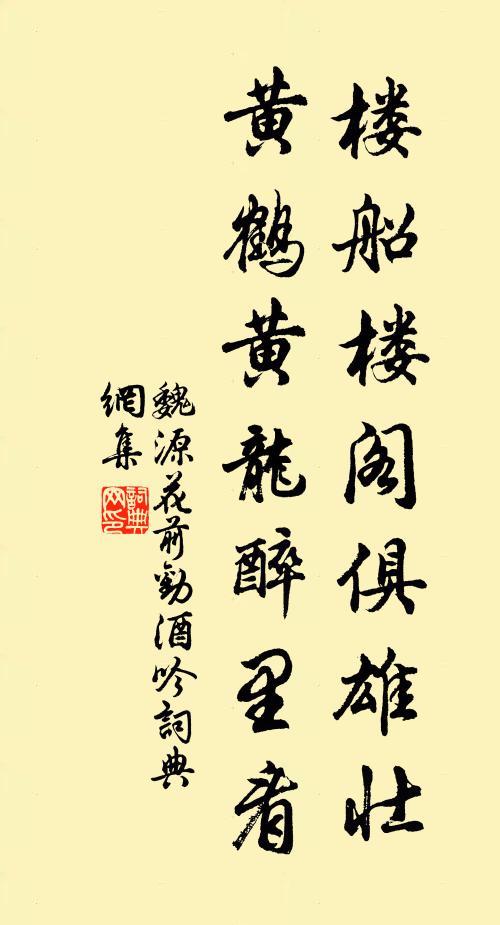 楼船楼阁俱雄壮
黄鹤黄龍醉里看
魏源花前勸酒吟詞典
網集
詞典
网印